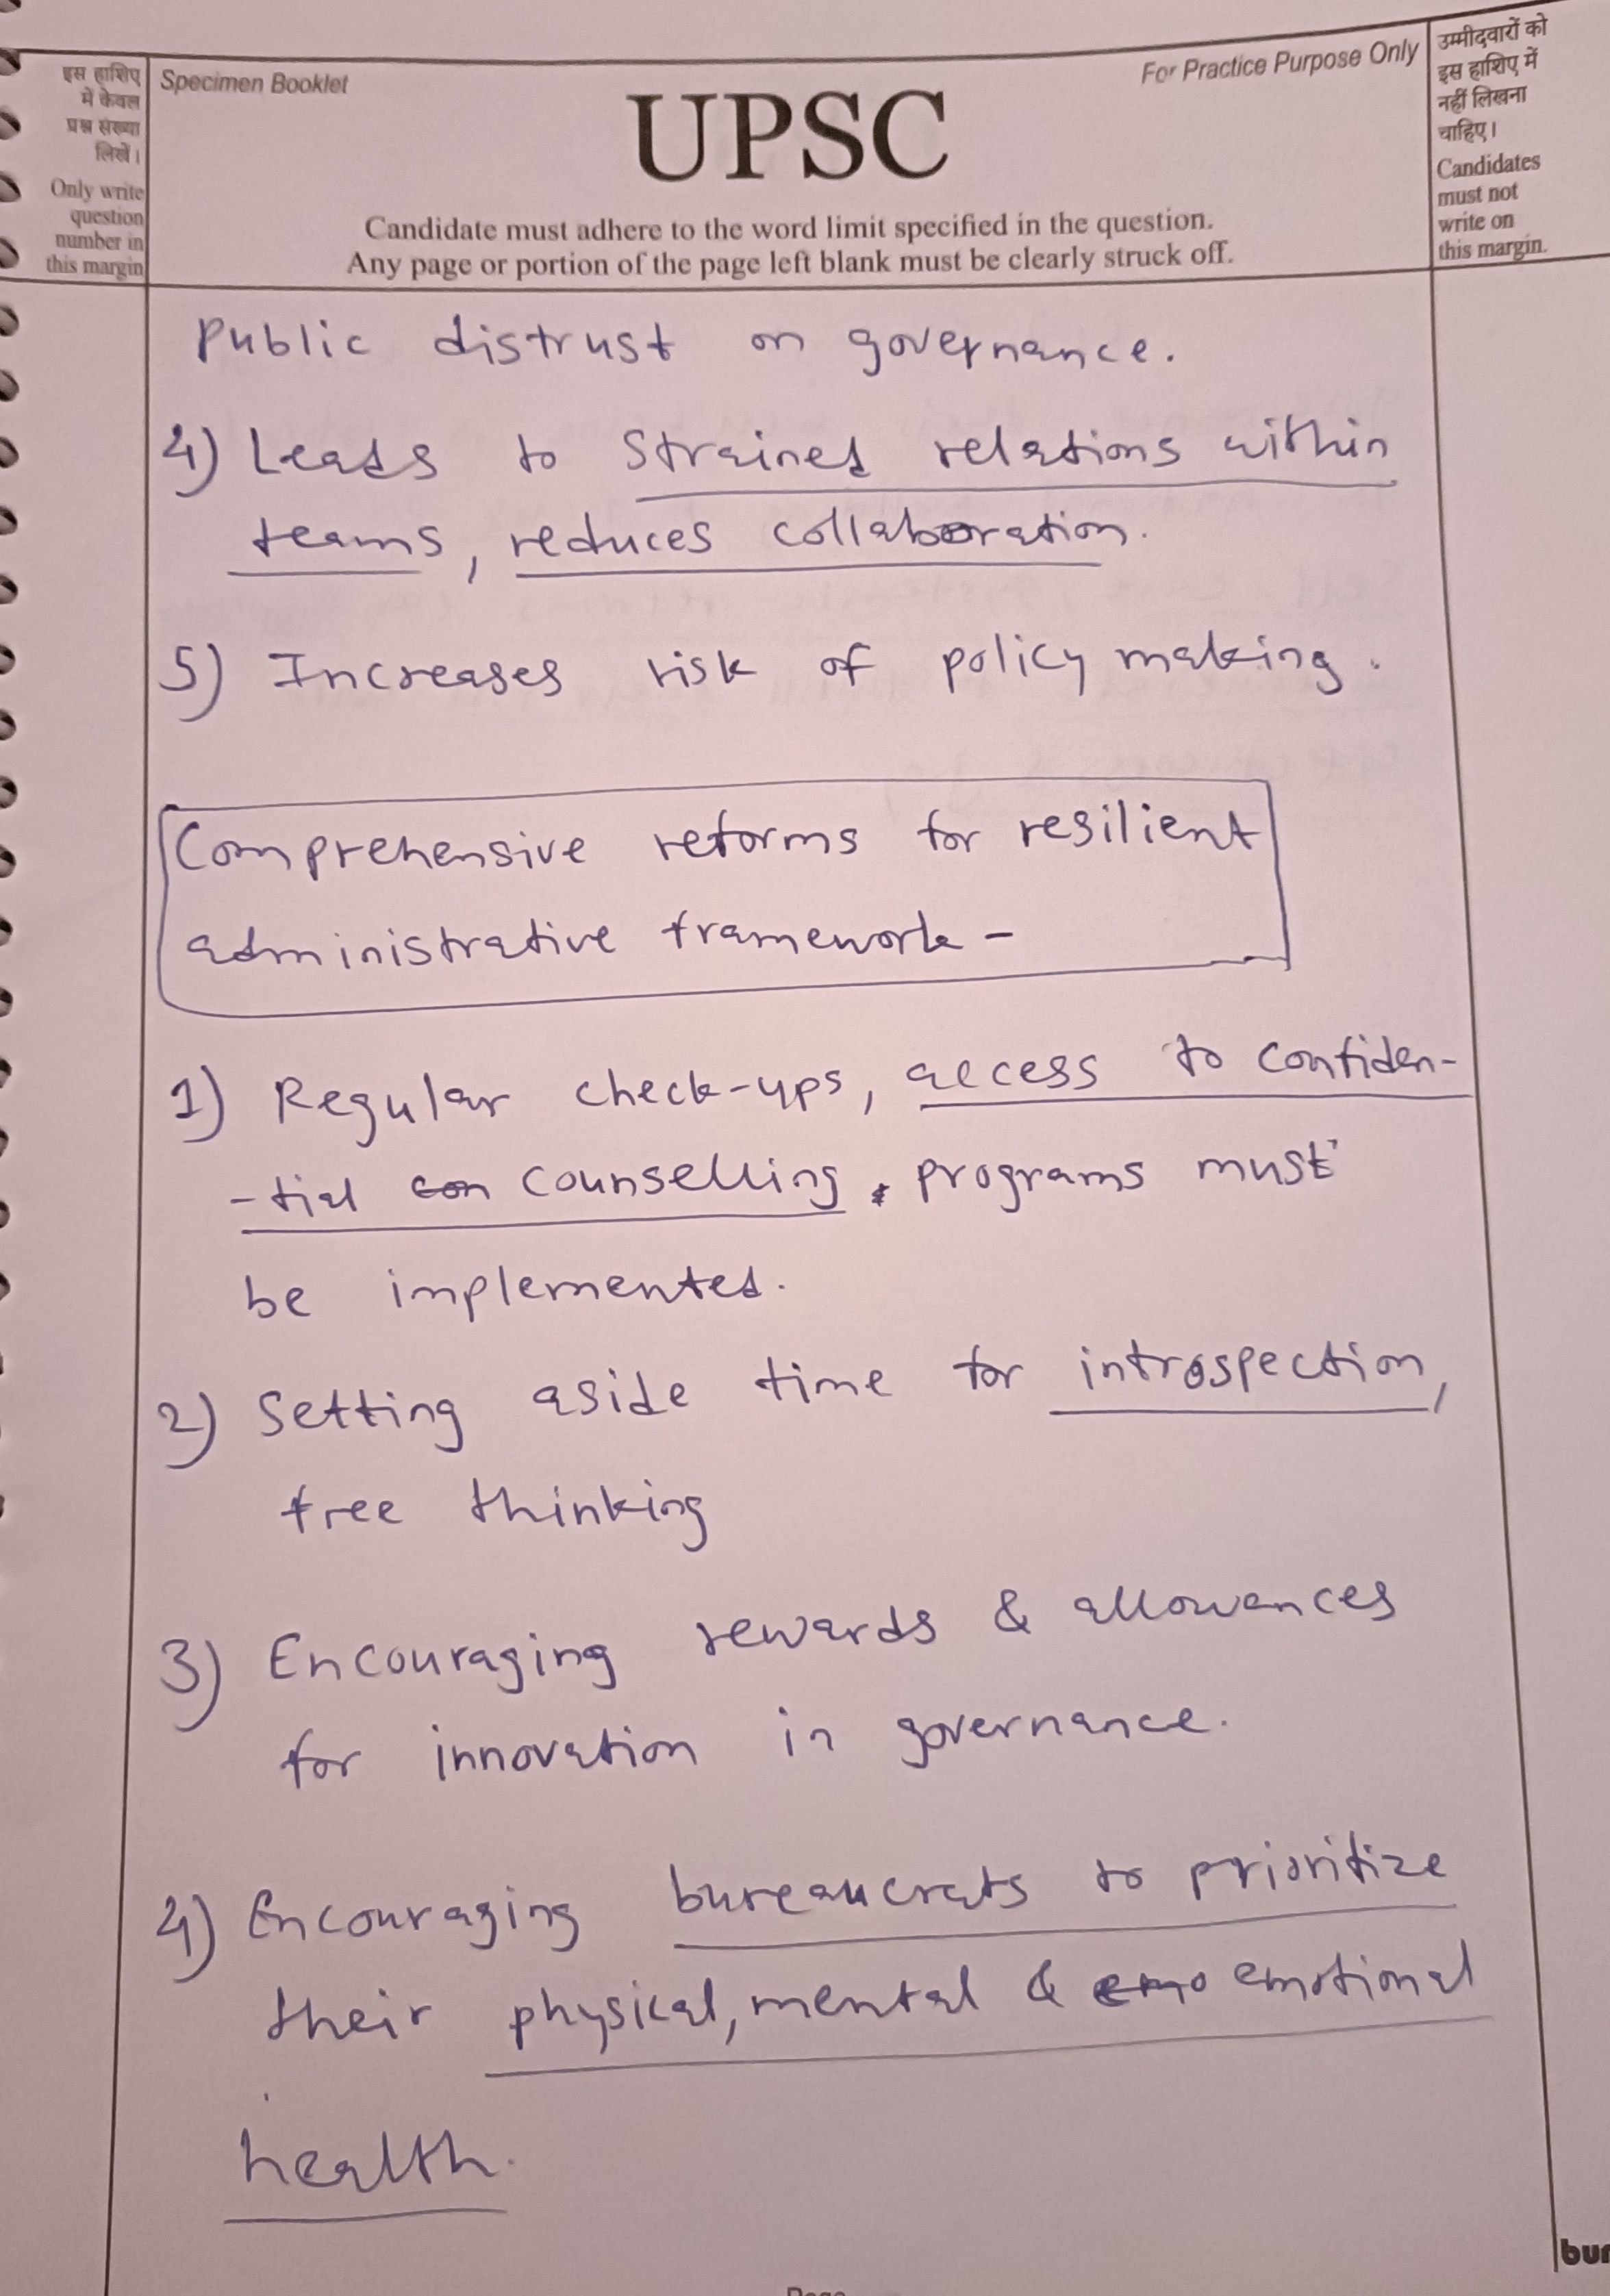 इस हाशिए
में केवल
प्रश्न संख्या
लिखें।
Only write
question
number in
this margin
Specimen Booklet
For Practice Purpose Only
UPSC
Candidate must adhere to the word limit specified in the question.
Any page or portion of the page left blank must be clearly struck off.
उम्मीदवारों को
इस हाशिए में
नहीं लिखना
चाहिए।
Candidates
must not
write on
this margin.
Public distrust on governance.
4) Leads to strained relations within
teams, reduces collaboration.
5) Increases risk of policy making.
Comprehensive reforms for resilient
administrative framework -
1) Regular check-ups, access to confiden-
-tial con counselling programs must
be implemented.
2) Setting aside time for introspection,
free thinking
3) Encouraging rewards & allowances
for innovation in governance.
4) Encouraging bureaucrats to prioritize
their physical, mental & emo emotional
health.